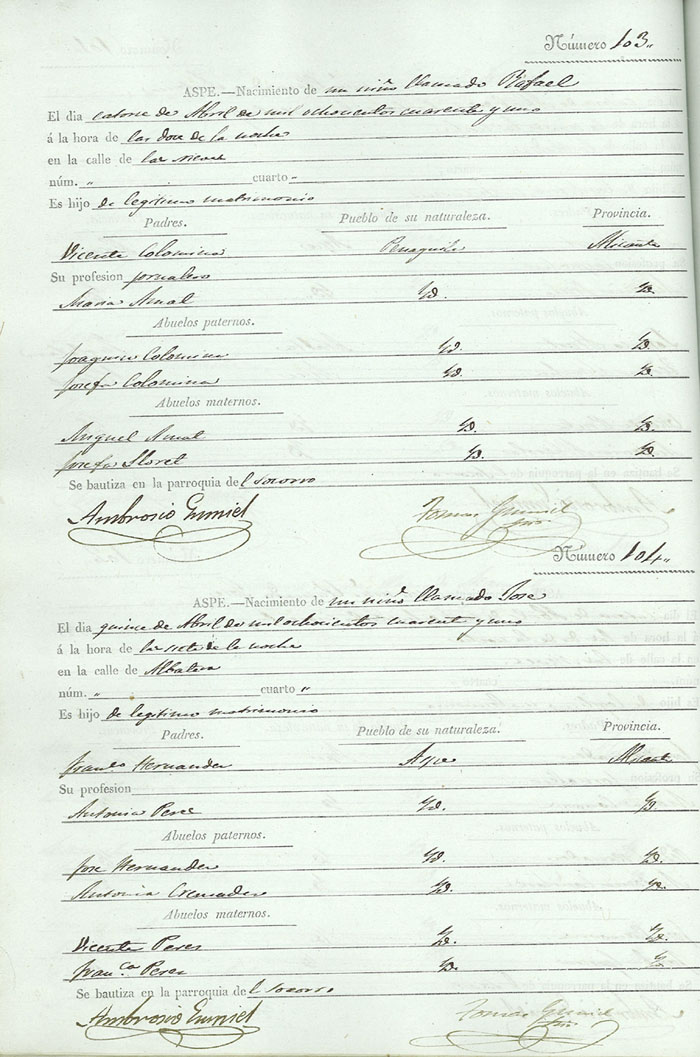 Número 103„
ASPE.—Nacimiento de un niño llamado Rafael
El dia catorse de Abril de mil ochosentos cuarente y uno
á la hora de las dose de la noche
en la calle de las nieves
núm. „ cuarto „
Es hijo de legitimo matrimonio
Padres. Pueblo de su naturaleza. Provincia.
Vicente Colomina Penaguila Alicante
Su profesion jornalero
Maria Amat Yd. Yd.
Abuelos paternos.
Joaquin Colomina Yd. Yd.
Josefa Colomina Yd. Yd.
Abuelos maternos.
Miguel Amat Yd. Yd.
Josefa Lloret Yd. Yd.
Se bautiza en la parroquia del socorro
Ambrosio Gumiel Tomas Gumiel
Número 104„
ASPE.—Nacimiento de un niño llamado Jose
El dia quinse de Abril de mil ochosientos cuarente y uno
á la hora de las siete de la noche
en la calle de Albatera
núm. „ cuarto „
Es hijo de legitimo matrimonio
Padres. Pueblo de su naturaleza. Provincia.
Hernandez Aspe Alicante
Su profesion
Antonia Peres Yd. Yd.
Abuelos paternos.
Jose Hernandez Yd. Yd.
Antonia Cremades Yd. Yd.
Abuelos maternos.
Vicente Peres Yd. Yd.
Fran.ca Peres Yd. Yd.
Se bautiza en la parroquia del socorro
Ambrosio Gumiel Tomas Gumiel